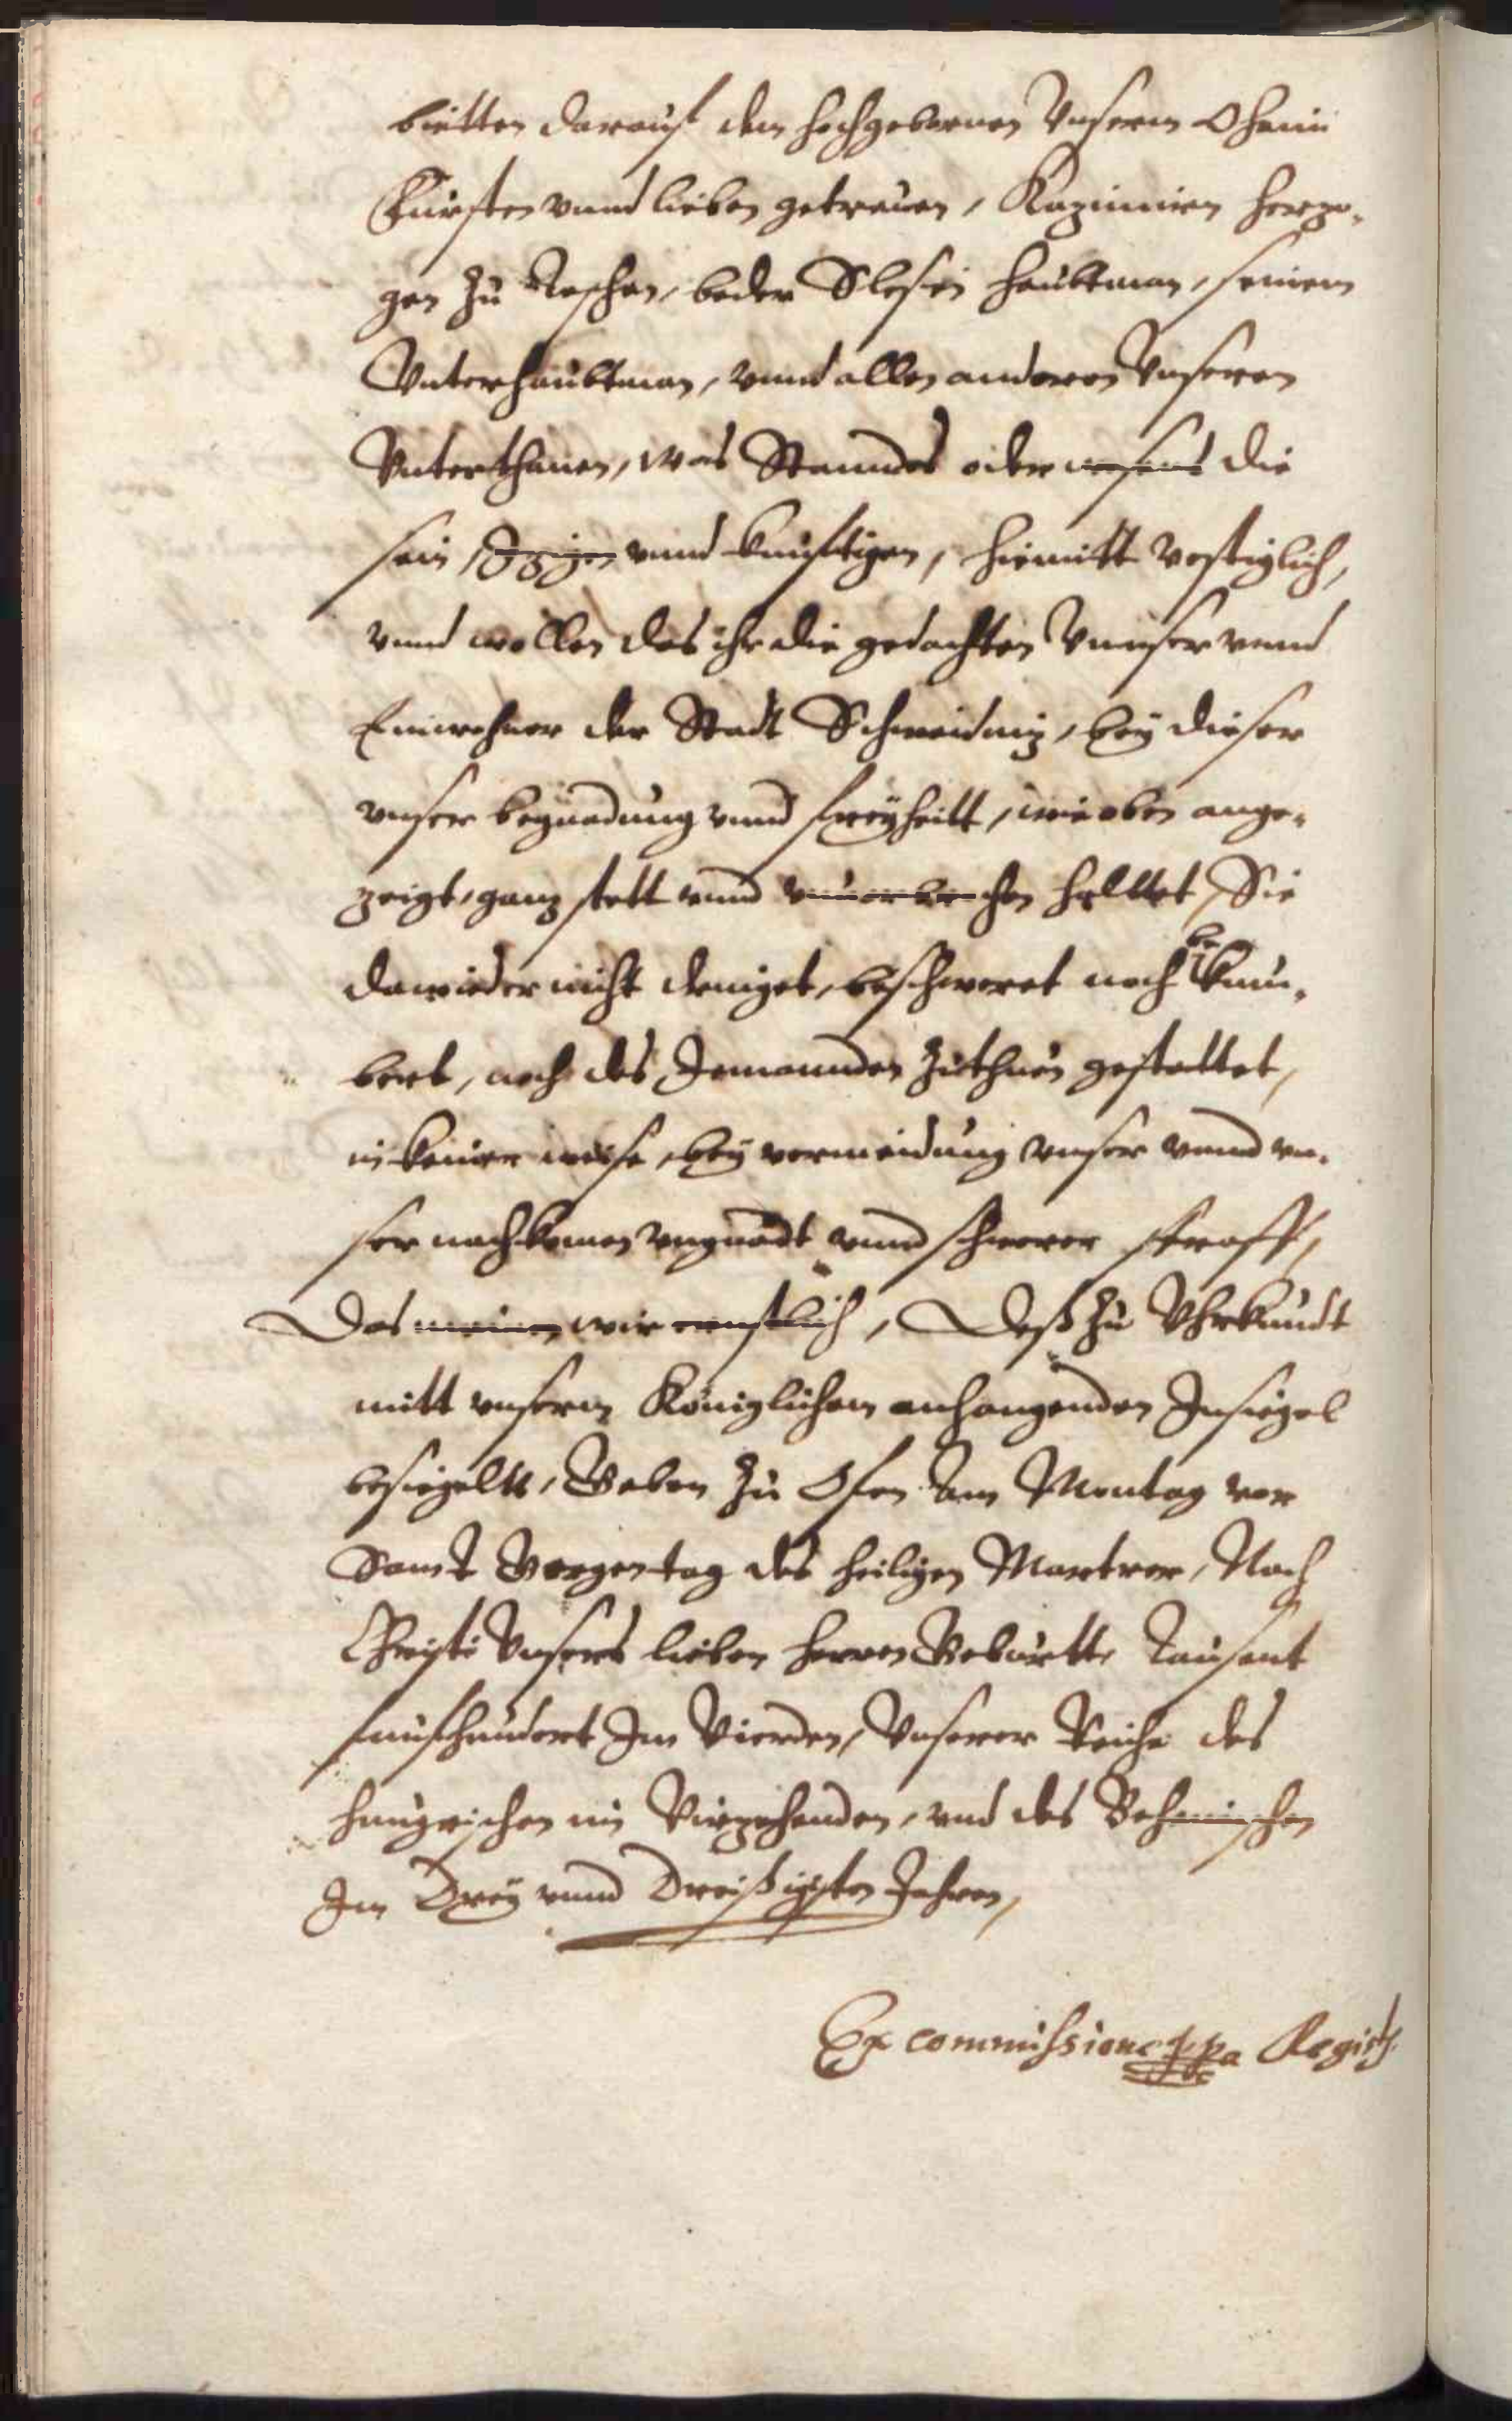 bietten darauf dem hochgebornen Vnserm Ohaim
Fürsten vnnd lieben getreuen, Kazimiren Herzo-
gen zu Teschen, beder Slesin Haubtman, seinem
Vnterhaubtman, vnnd allen anderen Vnseren
Vnterthanen, was Stanndes oder wesens die
sein, Izzigen vnnd kunftigen, hiemitt vestiglich,
vnnd wollen das ihr die gedachten Vnnser vnnd
Einwohner der Stadt Schweidniz, bey dieser
vnser begnadung vnnd freyheitt, wie oben ange-
zeigt, ganz stett vnnd vnuorbrochen haltet, Sie
dawieder nicht dringet, beschweret noch bekum-
bert, noch des Jemannden zuthun gestattet,
in keiner weise, bey vermeidung vnser vnnd vn-
ser nachkomen vngnadt vnnd schwerer straff,
Das meinen wir ernstlich, Deß zu Vhrkundt
mitt vnserm Königlichem anhangenden Insiegel
besiegeltt, Geben zu Ofen am Montag vor
Sanct Georgentag des heiligen Martrer, Nach
Christi Vnsers lieben herren Geburtt Tausent
funfhundert Im Vierden, Vnserer Reiche des
hungrischen im Vierzehenden, vnd des Behmischen
Im Drey vnnd Dreißigsten Jahren,
Ex commissione ppa Regist.